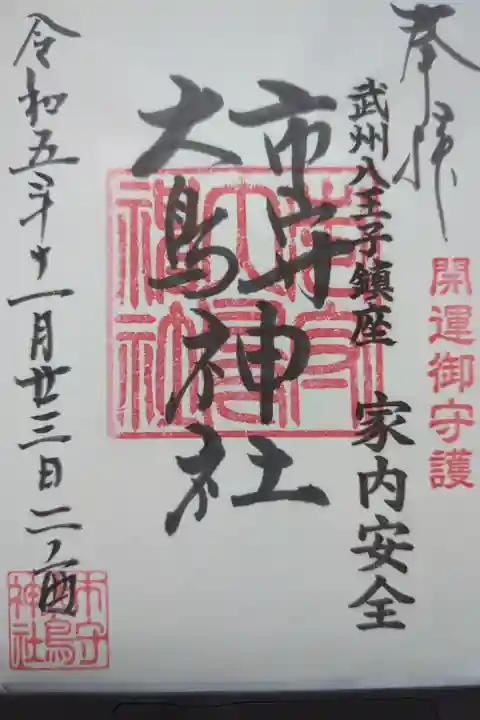 奉拝
開運御守護
武州八王子鎮座 家内安全
市守
大鳥
神社
令和五年十一月廿三日二ノ酉
市守
大鳥
神社